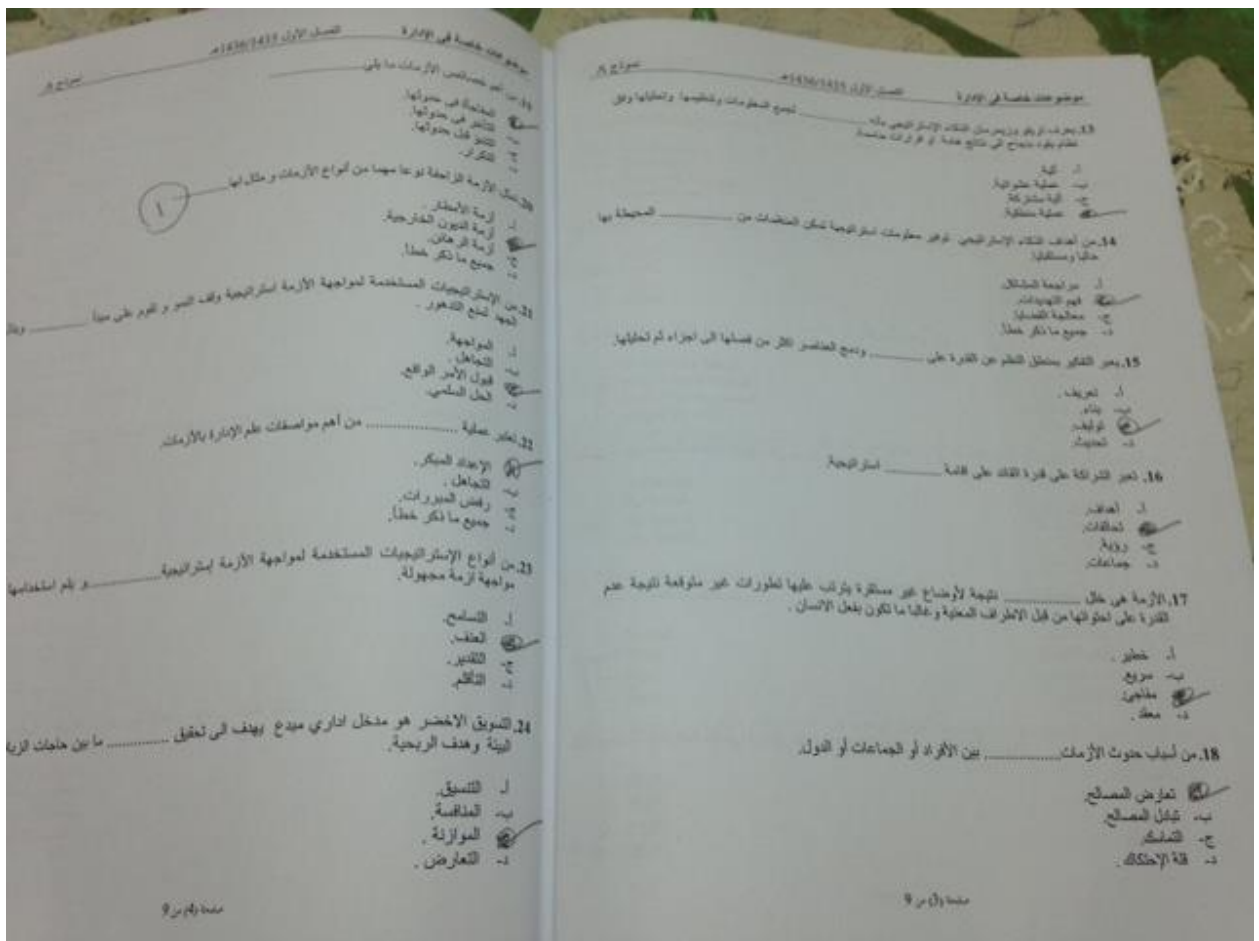 موضوعات خاصة في الإدارة
الفصل الأول 1436/1435هـ
نموذج A
13. يعرف تريكو وزيمرمان الذكاء الاستراتيجي بأنه ________ لجمع المعلومات وتنظيمها وتحليلها وفق
نظام يقود بنجاح الى نتائج هامة او قرارات حاسمة.
أ- آلية.
ب- عملية عشوائية.
ج- آلية مشتركة.
عملية منطقية.
14. من أهداف الذكاء الإستراتيجي توفير معلومات استراتيجية تمكن المنظمات من ________ المحيطة بها
حاليا ومستقبليا.
أ- مراجعة المشاكل.
فهم التهديدات.
ج- معالجة القضايا.
د- جميع ما ذكر خطأ.
15. يعبر التفكير بمنطق النظم عن القدرة على ________ ودمج العناصر اكثر من فصلها الى اجزاء ثم تحليلها.
أ- تعريف.
ب- بناء.
توليف.
د- تحديث.
16. تعبر الشراكة على قدرة القائد على اقامة ________ استراتيجية.
أ- أهداف.
تحالفات.
ج- رؤية.
د- جماعات.
17. الأزمة هي خلل ________ نتيجة لأوضاع غير مستقرة يترتب عليها تطورات غير متوقعة نتيجة عدم
القدرة على احتوائها من قبل الاطراف المعنية وغالبا ما تكون بفعل الانسان .
أ- خطير .
ب- سريع.
مفاجئ.
د- معقد .
18. من أسباب حدوث الأزمات............... بين الأفراد أو الجماعات أو الدول.
تعارض المصالح.
ب- تبادل المصالح.
ج- التماسك.
د- قلة الإحتكاك .
صفحة (3) من 9
موضوعات خاصة في الإدارة
الفصل الأول 1436/1435هـ
نموذج A
19. من أهم خصائص الأزمات ما يلي ________
المفاجأة في حدوثها.
ب- التأخر في حدوثها.
ج- التنبؤ قبل حدوثها.
د- التكرار.
20. تمثل الأزمة الزاحفة نوعا مهما من أنواع الأزمات و مثال لها ________
1
أ- أزمة الأمطار.
أزمة الديون الخارجية.
ج- أزمة الرهائن.
د- جميع ما ذكر خطأ.
21. من الإستراتيجيات المستخدمة لمواجهة الأزمة استراتيجية وقف النمو و تقوم على مبدأ ________
الجهد لمنع التدهور .
أ- المواجهة.
ب- التجاهل .
قبول الأمر الواقع.
د- الحل السلمي.
22. تعتبر عملية ................ من أهم مواصفات علم الإدارة بالأزمات.
الإعداد المبكر.
ب- التجاهل .
ج- رفض المبررات.
د- جميع ما ذكر خطأ.
23. من أنواع الإستراتيجيات المستخدمة لمواجهة الأزمة إستراتيجية ________ و يتم استخدامها
مواجهة أزمة مجهولة.
أ- التسامح.
العنف.
ج- التقدير.
د- التأقلم.
24. التسويق الاخضر هو مدخل اداري مبدع يهدف الى تحقيق ............. ما بين حاجات
البيئة وهدف الربحية.
أ- التنسيق.
ب- المنافسة.
الموازنة .
د- التعارض .
صفحة (4) من 9